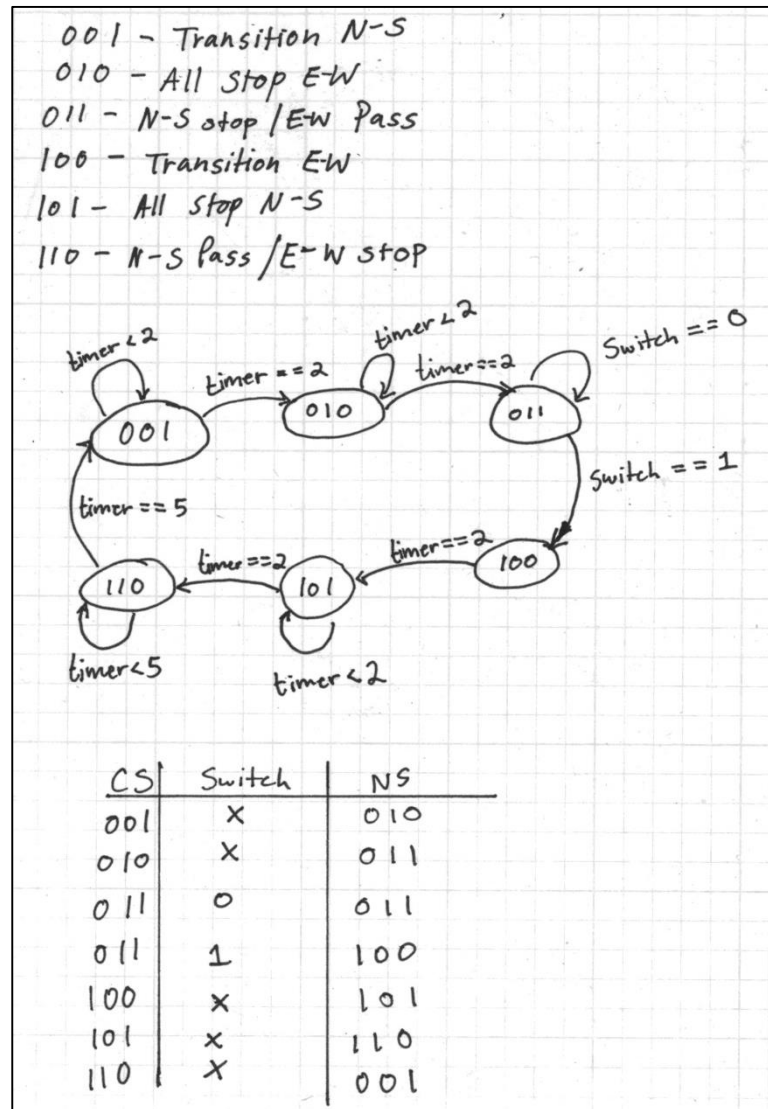 001 - Transition N-S
010 - All Stop E-W
011 - N-S stop / E-W Pass
100 - Transition E-W
101 - All Stop N-S
110 - N-S Pass / E-W stop
timer < 2
timer == 2
timer < 2
timer == 2
Switch == 0
001
010
011
Switch == 1
timer == 5
timer == 2
timer == 2
110
101
100
timer < 5
timer < 2
CS Switch NS
001 X 010
010 X 011
011 0 011
011 1 100
100 X 101
101 X 110
110 X 001